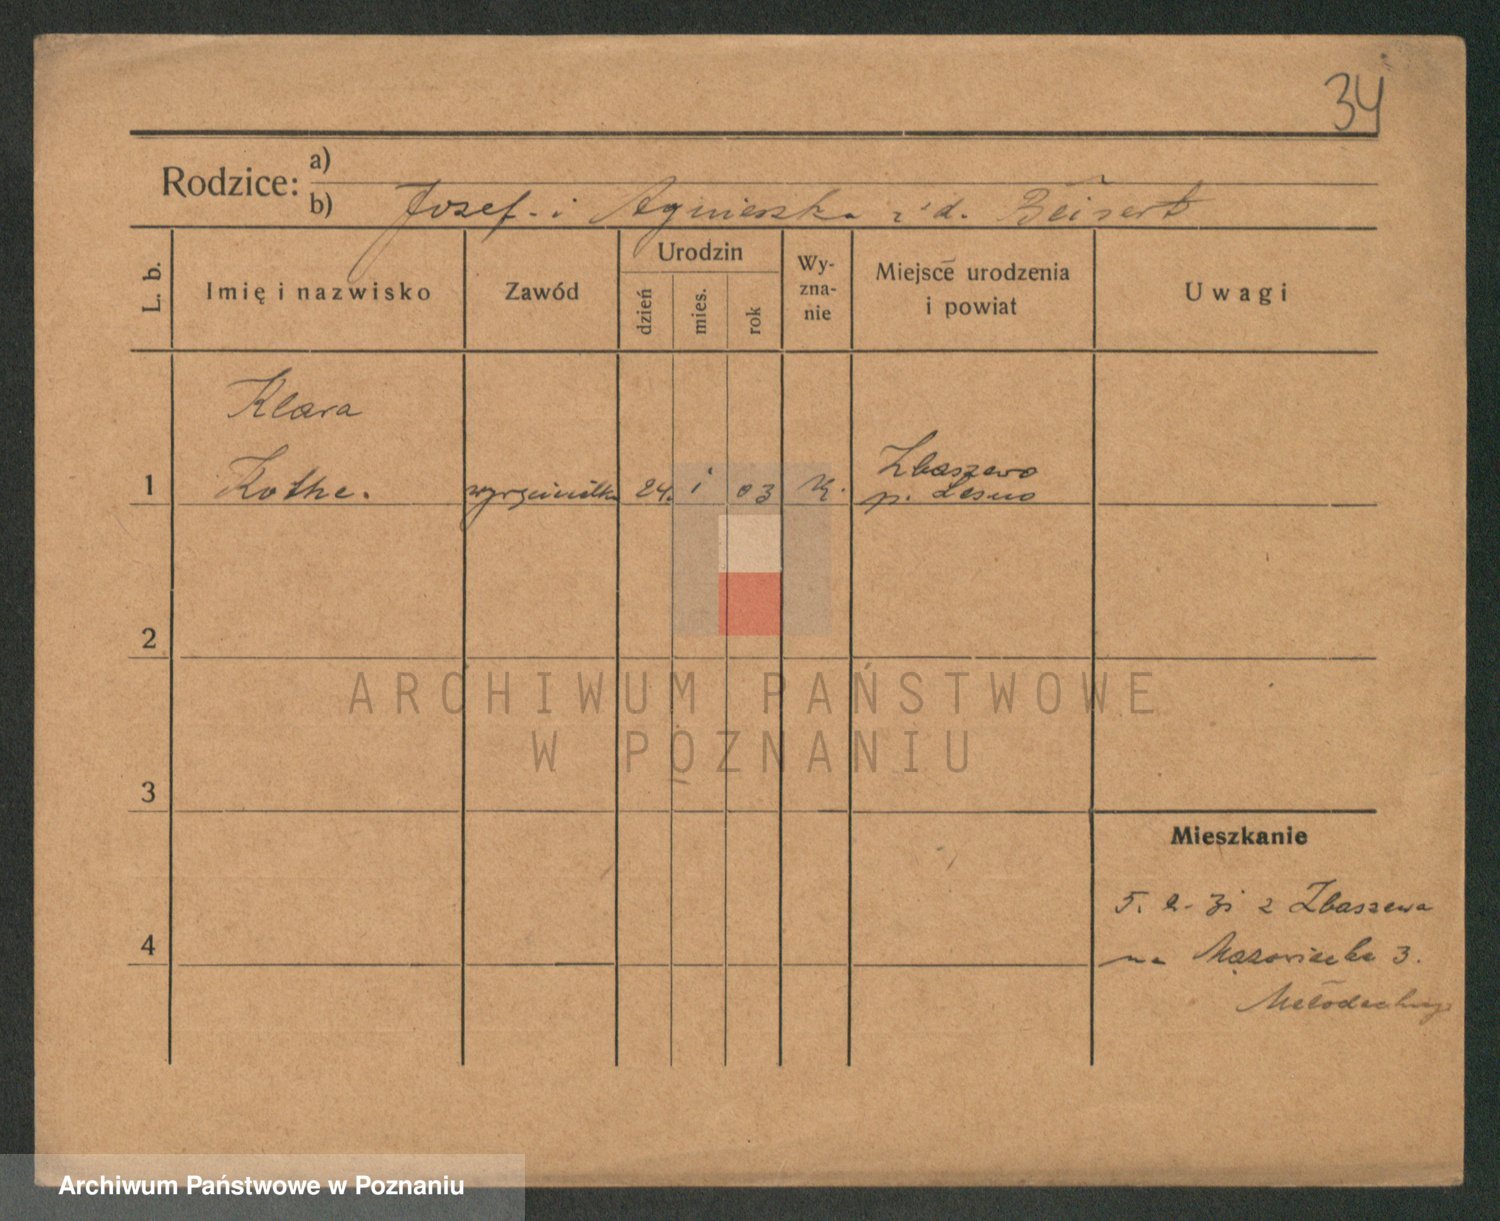 34
Rodzice: a)
b) Josef i Agnieszka z d. Beisert
L. b.
Imię i nazwisko
Zawód
Urodzin
dzień
mies.
rok
Wy-
zna-
nie
Miejsce urodzenia
i powiat
Uwagi
Klara
1 Kothe. 24. i 03 Zbaszewo
p. Lesno
2
ARCHIWUM PAŃSTWOWE
W POZNANIU
3
Mieszkanie
4
5. 2. 31 z Zbaszewa
na Mazowiecka 3.
Archiwum Państwowe w Poznaniu